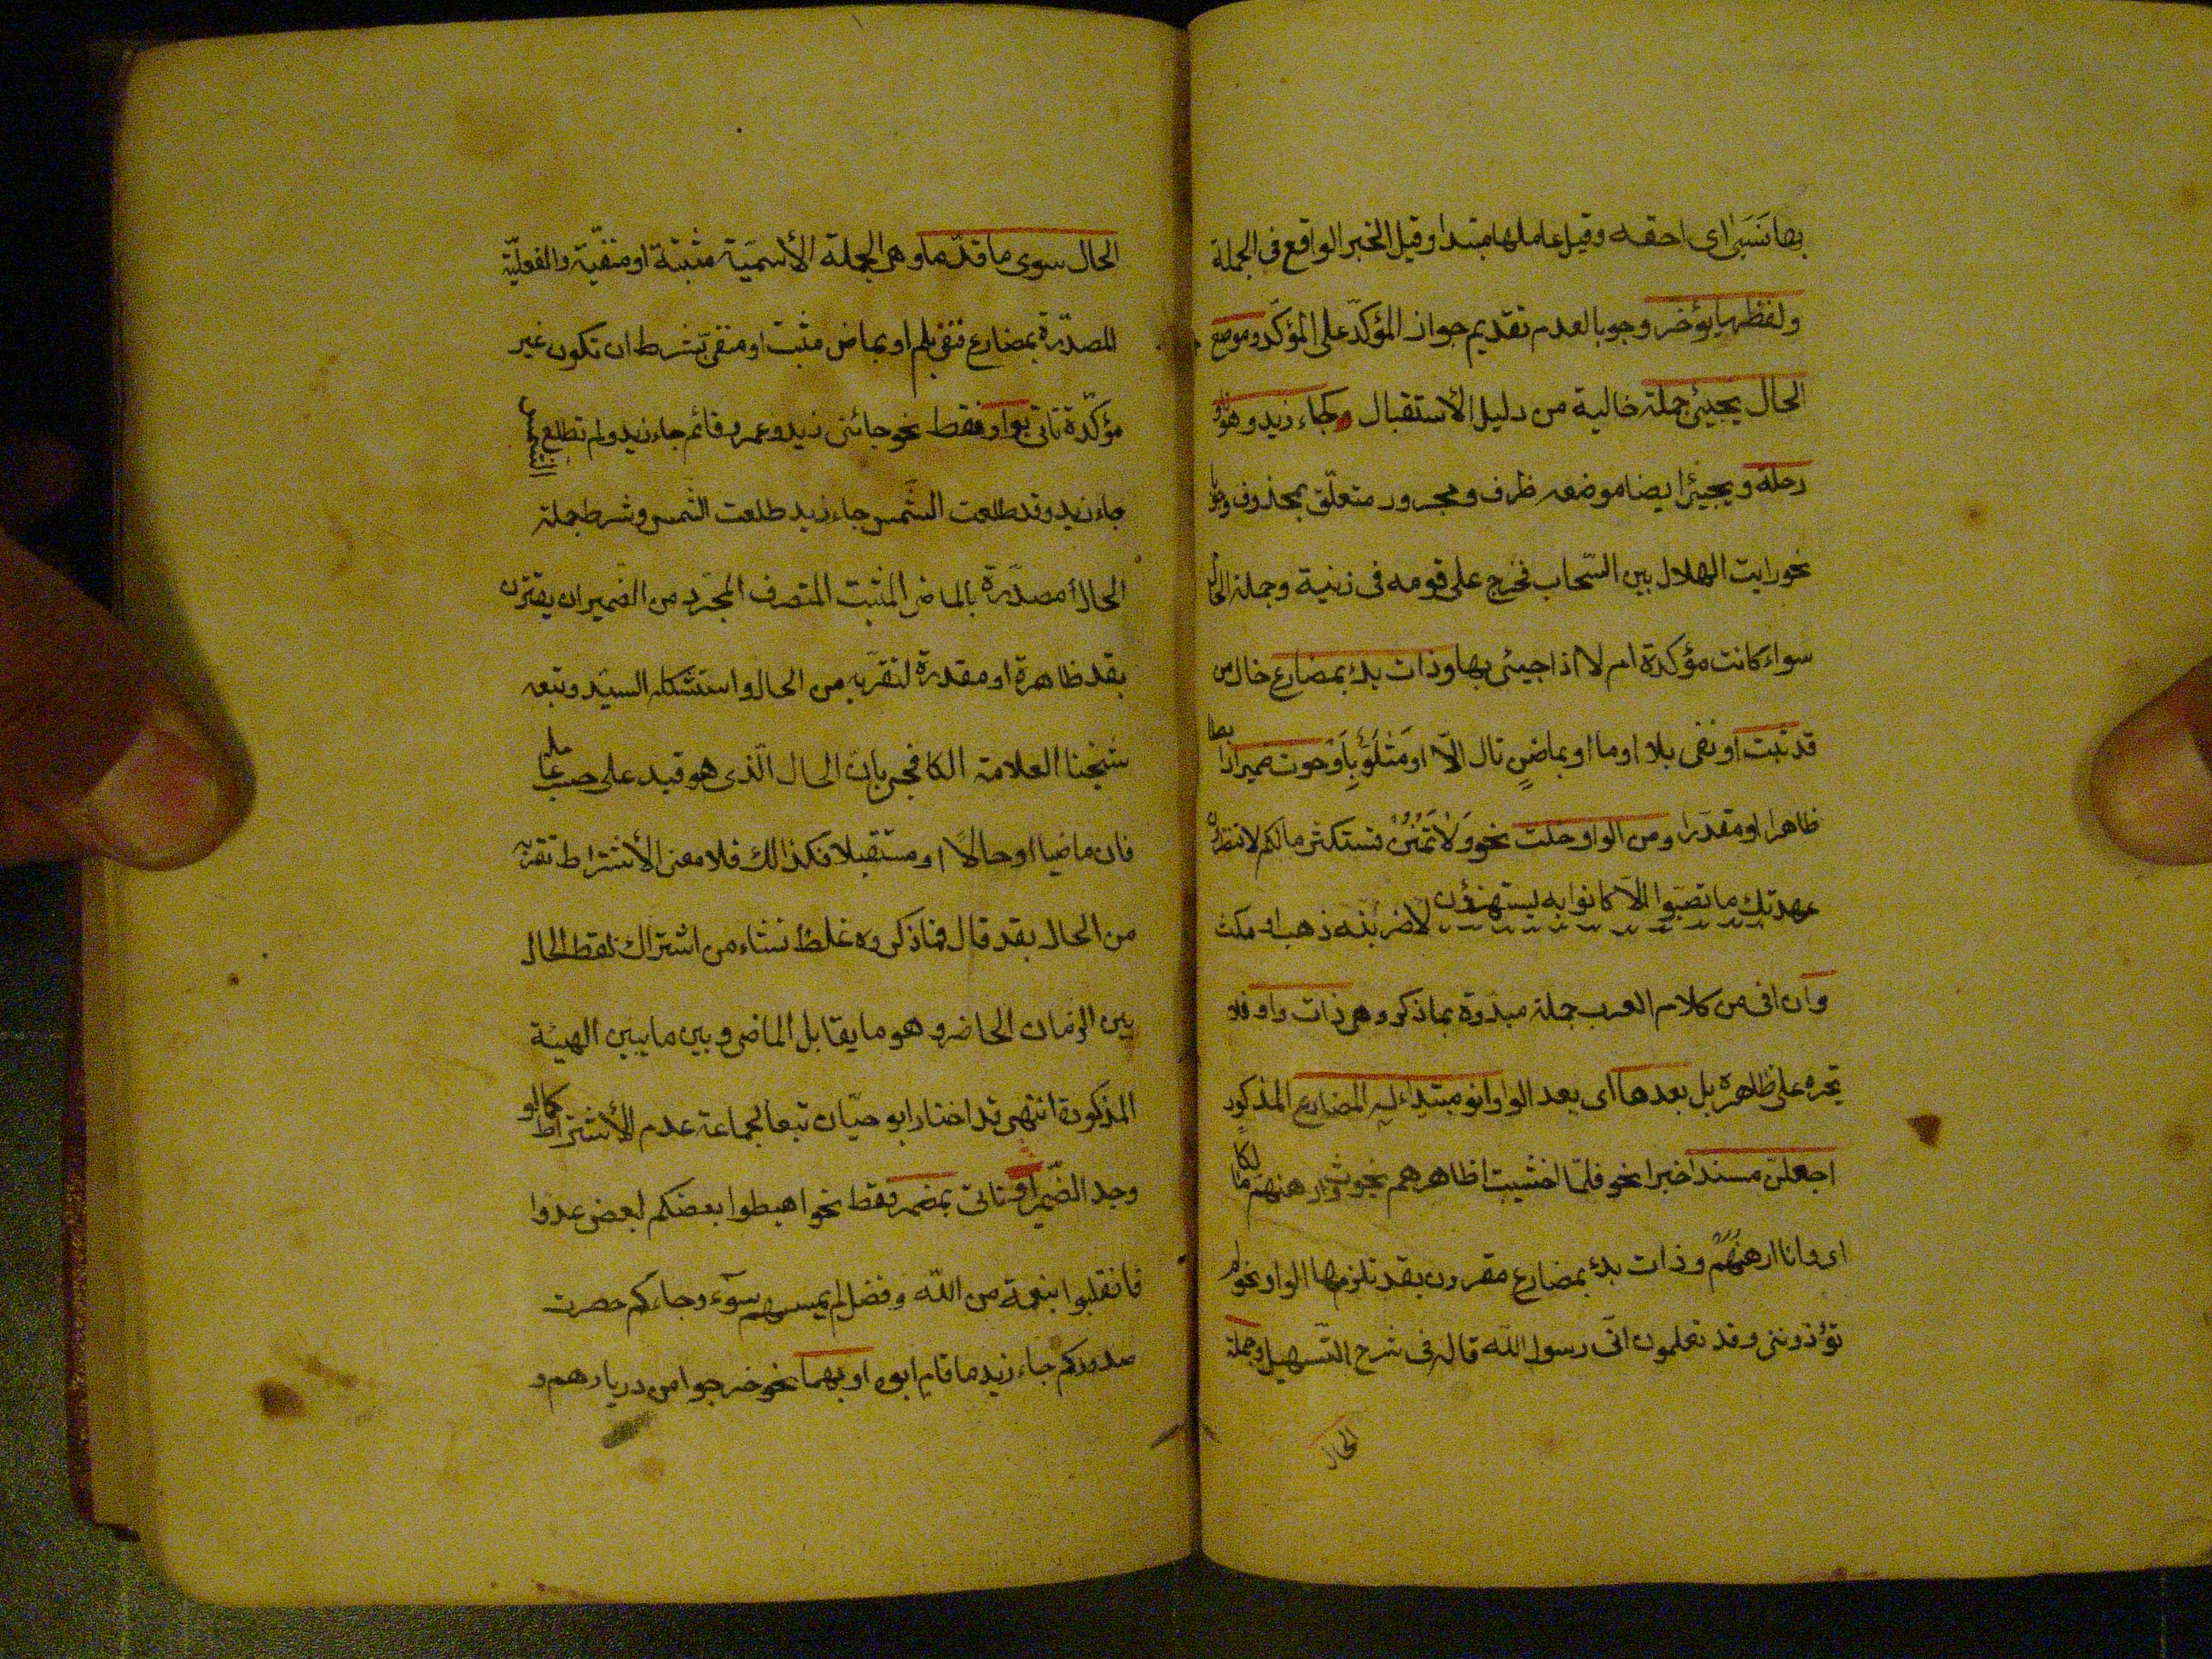 بها نسبى اى احقه وقيل عاملها مبتدا وقيل الخبر الواقع فى الجملة
ولفظها يؤخر وجوبا لعدم تقديم جواز المؤكّد على المؤكّد وموضع
الحال يجيئ جملة خالية من دليل الأستقبال كجاء زيد وهو ناو
رحلة ويجيئ ايضا موضعه ظرف ومجرور متعلّق بمحذوف وجوبا
نحو رايت الهلال بين السّحاب فخرج على قومه فى زنية وجملة الحال
سواء كانت مؤكدة ام لا اذا جيئى بها وذات بدء بمضارع خال من
قد ثبت او نفى بلا او ما او بماضٍ تال الّا او مَتْلُوٍّ بِاَوْ حوت ضميرا رابطا
ظاهرا او مقدّرا ومن الواو خلت نحو وَلَا تَمْنُنْ تستكثر مالكم لا تنظرون
عهدتك ما تصبوا الّا كانوا به يستهزؤن لاضربنه ذهب او مكث
وان اتى من كلام العرب جملة مبدوة بما ذكر وهى ذات واو فلا
تجره على ظاهره بل بعدها اى بعد الواو انو مبتداء له المضارع المذكور
اجعلنّ مسندا خبرا نحو فلمّا اخشيت اظافرهم نجوت وارهنهم مالكا
اى وانا ارهنُهُمْ وذات بدء بمضارع مقرون بقد تلزمها الواو نحو لم
تؤذوننى وقد تعلمون انّى رسول اللّه قاله فى شرح التّسهيل وجملة
الحال
الحال سوى ما قدّما وهى الجملة الأسميّة مثبتة او منفيّة والفعليّة
المصدّرة بمضارع منفى بلم او بماض مثبت او منفىّ بشرط ان تكون غير
مؤكّدة تاتى بواو فقط نحو جائنى زيد وعمرو قائم جاء زيد ولم تطلع الشمس
جاء زيد وقد طلعت الشّمس جاء زيد طلعت الشّمس وشرط جملة
الحال أمصدّرة بالماضى المثبت المتصرف المجرّد من الضّمير ان يقترن
بقد ظاهرة او مقدرة لتقرّبه من الحال واستشكله السيّد وتبعه
شيخنا العلامة الكافجى بانّ الحال الّذى هو قيد على حسب عامله
فان ماضيا او حالًا او مستقبلا فكذالك فلا معنى الأشتراط تقرّبه
من الحال بقد قال فما ذكروه غلط نشاء من اشتراك لفظ الحال
بين الزمان الحاضر وهو ما يقابل الماضى وبين ما يبين الهيئة
المذكورة انتهى قد اختار ابو حيّان تبعا لجماعة عدم الأشتراط كما لو
وجد الضّمير او تاتى بمضمر فقط نحو اهبطوا بعضكم لبعض عدوا
فانقلبوا بنعمة من اللّه وفضل لم يمسسهم سوء وجاءكم حصرت
صدوركم جاء زيد ما قام ابوه او بهما نحو خرجوا من دريارهم و